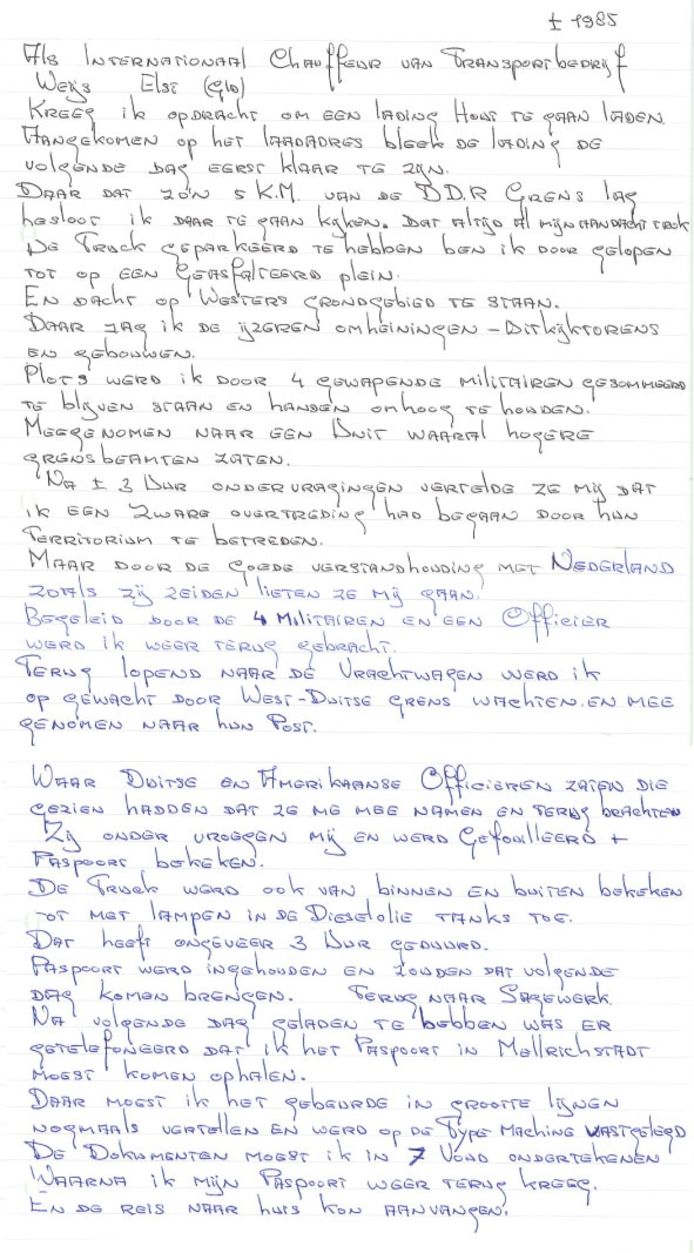 ± 1985
Als Internationaal Chauffeur van Transportbedrijf
Weijs Elst (Gld)
Kreeg ik opdracht om een lading Hout te gaan laden.
Aangekomen op het laadadres bleek de lading de
volgende dag eerst klaar te zijn.
Daar dat zo'n 5 K.M. van de D.D.R Grens lag
besloot ik daar te gaan kijken. Dat altijd al mijn aandacht trok
De Truck geparkeerd te hebben ben ik door gelopen
tot op een Geasfalteerd plein.
En dacht op Westers grondgebied te staan.
Daar zag ik de ijzeren omheiningen - Uitkijktorens
en gebouwen.
Plots werd ik door 4 gewapende militairen gesommeerd
te blijven staan en handen omhoog te houden.
Meegenomen naar een Unit waaral hogere
grensbeamten zaten.
Na ± 3 Uur ondervragingen vertelde ze mij dat
ik een zware overtreding had begaan door hun
Territorium te betreden.
Maar door de goede verstandhouding met Nederland
zoals zij zeiden lieten ze mij gaan.
Begeleid door de 4 Militairen en een Officier
werd ik weer terug gebracht.
Terug lopend naar de Vrachtwagen werd ik
op gewacht door West-Duitse grens wachten.en mee
genomen naar hun Post.
Waar Duitse en Amerikaanse Officieren zaten die
gezien hadden dat ze me mee namen en terug brachten
Zij onder vroegen mij en werd Gefouilleerd +
Paspoort bekeken.
De Truck werd ook van binnen en buiten bekeken
tot met lampen in de Dieselolie tanks toe.
Dat heeft ongeveer 3 Uur geduurd.
Paspoort werd ingehouden en zouden dat volgende
dag komen brengen. Terug naar Sagewerk.
Na volgende dag geladen te hebben was er
getelefoneerd dat ik het Paspoort in Mellrichstadt
moest komen ophalen.
Daar moest ik het gebeurde in grootte lijnen
nogmaals vertellen en werd op de Type Maching vastgelegd
De Dokumenten moest ik in 7 Voud ondertekenen
Waarna ik mijn Paspoort weer terug kreeg.
En de reis naar huis kon aanvangen.